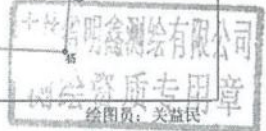 明鑫测绘有限公司
桥
测绘资质专用章
绘图员：关益民